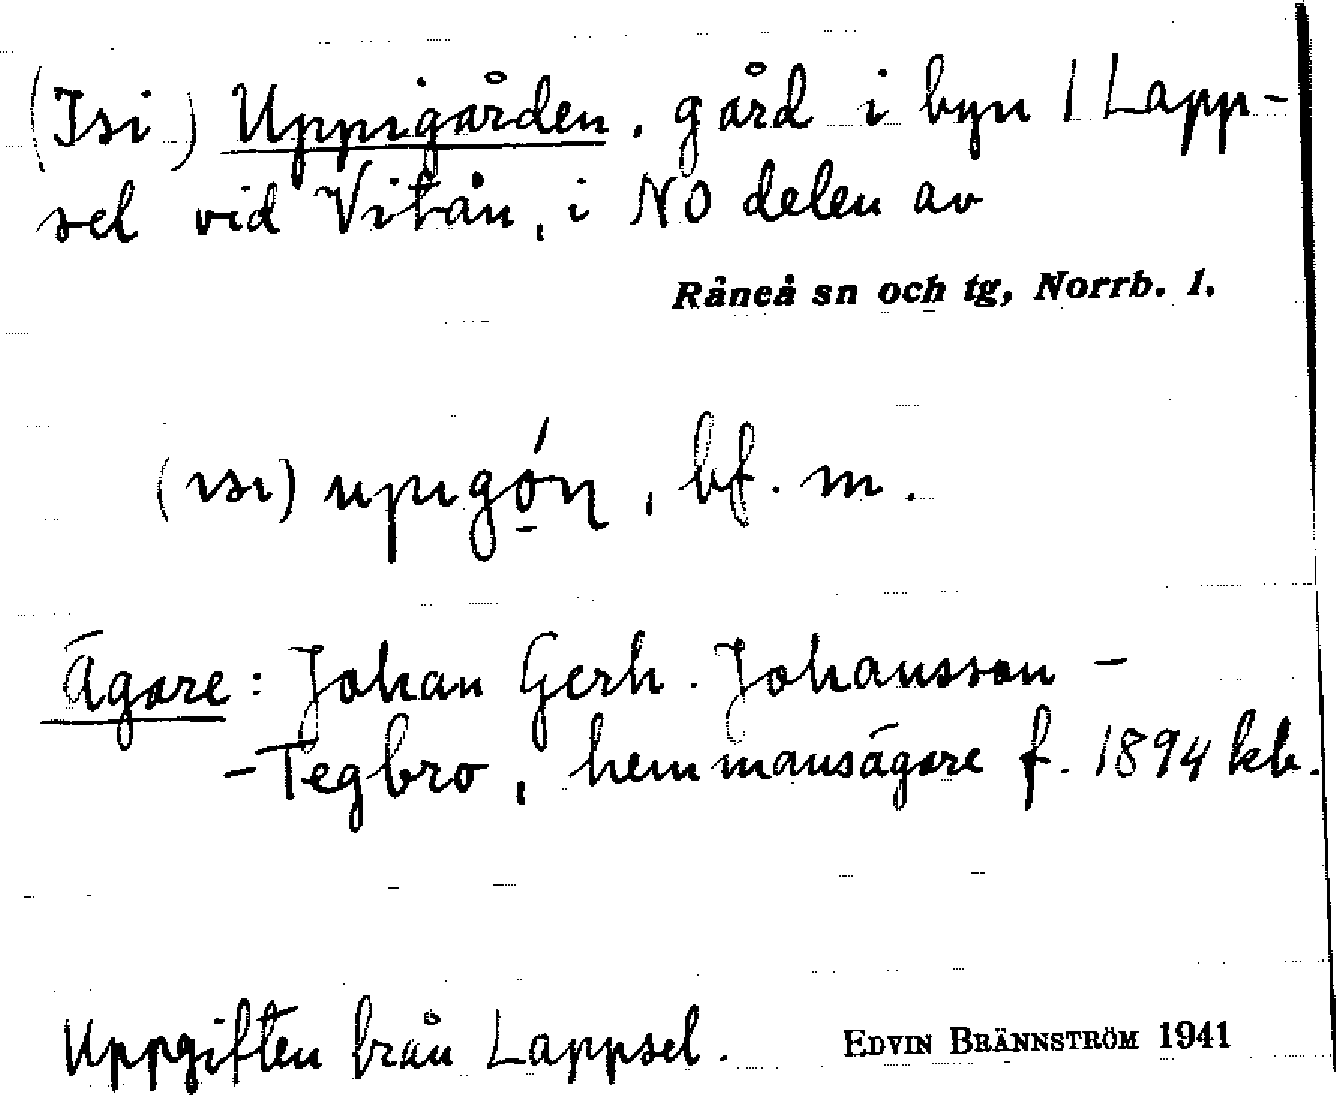 (Isi) Uppigården, gård i byn 1 Lapp-
sel vid Vitån, i NO delen av
Råneå sn och tg, Norrb. l.
(ısı) upıgó̠ṇ, bf. m.
Ägare: Johan Gerh. Johansson -
-Tegbro, hemmansägare f. 1894 kb.
Uppgiften från Lappsel. EDVIN BRÄNNSTRÖM 1941